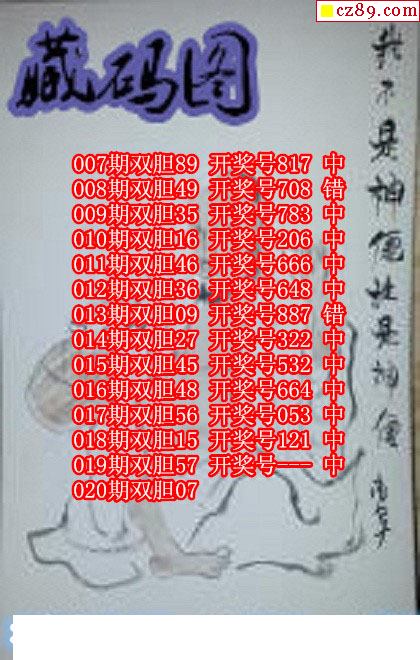 cz89.com
藏码图
007期双胆89 开奖号817 中
008期双胆49 开奖号708 错
009期双胆35 开奖号783 中
010期双胆16 开奖号206 中
011期双胆46 开奖号666 中
012期双胆36 开奖号648 中
013期双胆09 开奖号887 错
014期双胆27 开奖号322 中
015期双胆45 开奖号532 中
016期双胆48 开奖号664 中
017期双胆56 开奖号053 中
018期双胆15 开奖号121 中
019期双胆57 开奖号--- 中
020期双胆07
我不是神但比是神